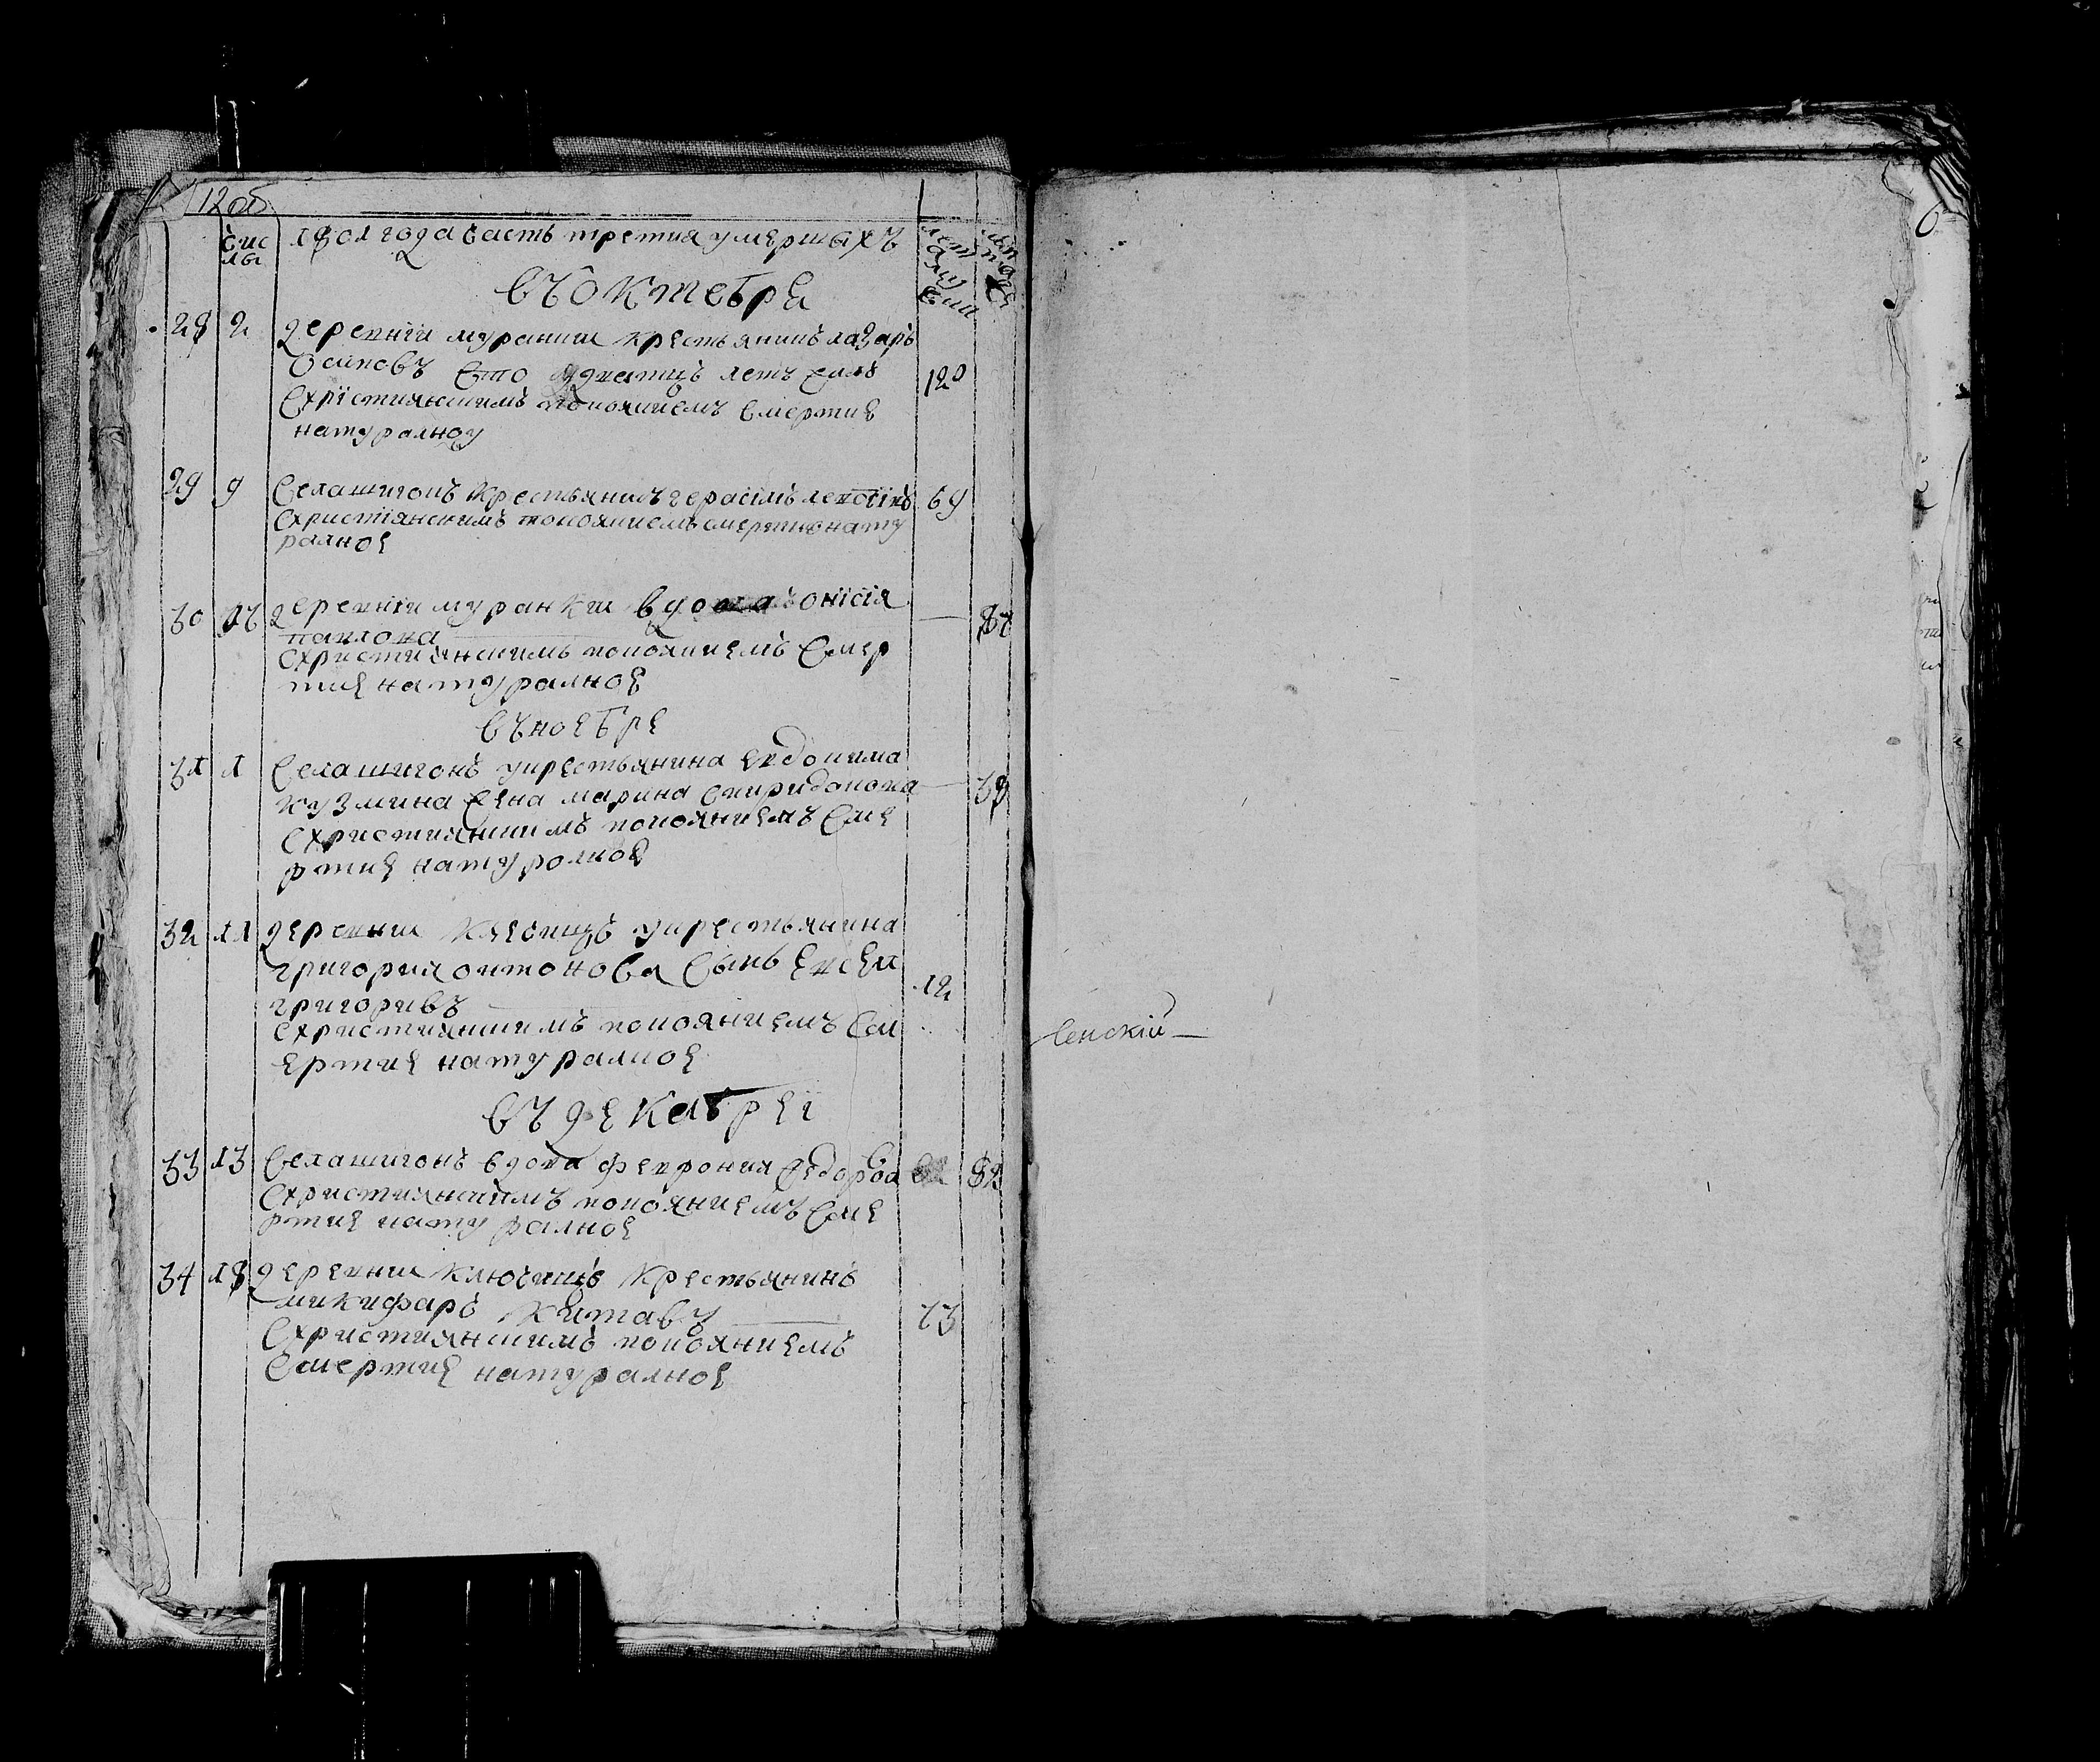 12 об
чис
лы
1801 года часть третия умершыхъ
лет
а
му
въ октебре
28 2 деревнiи муранки крестьянинъ лазаръ
Осиповъ сто двватцъ летъ 120
Схрїстиянскимъ покоянием смертие
натуралноу
29 9 Селашигонъ крестьянинъ герасiмъ 69
Схристiянскимъ покояниемъ смертию нату
ралное
30 16 деревнiи муранки вдова онiсiя
павлова
Схристиянскимъ покояниемъ Смер
тие натуралное
въ ноебре
31 1 Селашигонъ укрестьянина евдокима
кузмина жена марина спиридонова 38
Схристиянским покояниемъ Сме
ртие натуролное
32 11 деревни укрестьянина
григория онтонова Сынъ
григоривъ 12
Схристиянскимъ покояниемъ См
ертие натуралное
въ декабреi
33 13 Селашигонъ вдова феврония
Схристиянскимъ покояниемъ Сме
ртие натуралное
34 18 деревни ключищъ крестьянинъ
микифаръ китавъ 73
Схристиянскимъ покояниемъ
Смертие натуралное